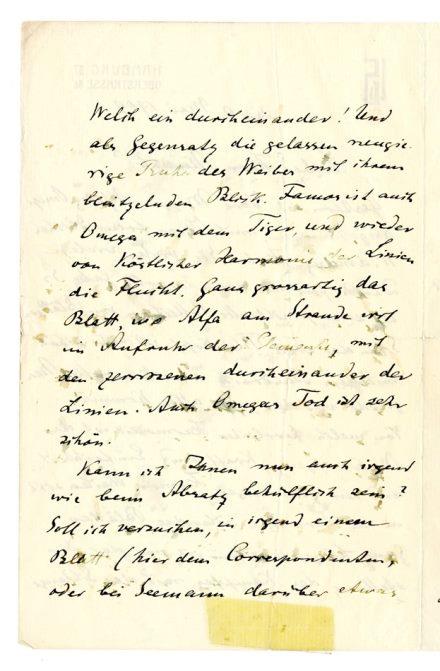 HAMBURG 37
OBERSTRASSE
Welch ein durcheinander! Und
als Gegensatz die gelassen neugie-
rige Ruhe des Weibes mit ihrem
Blick. Famos ist auch
Omega mit dem Tiger, und wieder
von köstlicher Harmonie der Linien
die Flucht. Ganz grossartig das
Blatt, wo Alfa am Strande irrt
im Aufruhr der Elemente, mit
dem zerrissenen durcheinander der
Linien. Auch Omegas Tod ist sehr
schön.
Kann ich Ihnen nun auch irgend
wie beim Absatz behülflich sein?
Soll ich versuchen, in irgend einem
Blatt (hier dem Correspondenten,
oder bei Seemann darüber etwas